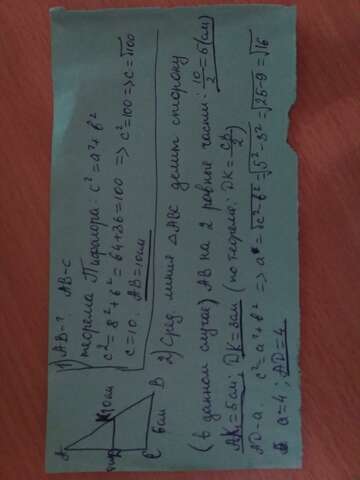 1) AB-? AB-c
теорема Пифагора: c²=a²+b²
c²=8²+6²=64+36=100 => c²=100 => c=√100
c=10. AB=10см
A
K
10см
D
B
C
6см
2) Сред. линия △ABC делит сторону
(в данном случае) AB на 2 равные части: 10/2=5(см)
AK=5см; DK=3см (по теореме: DK=CB/2)
AD-a. c²=a²+b² => a=√c²-b²=√5²-3²=√25-9=√16
a=4; AD=4